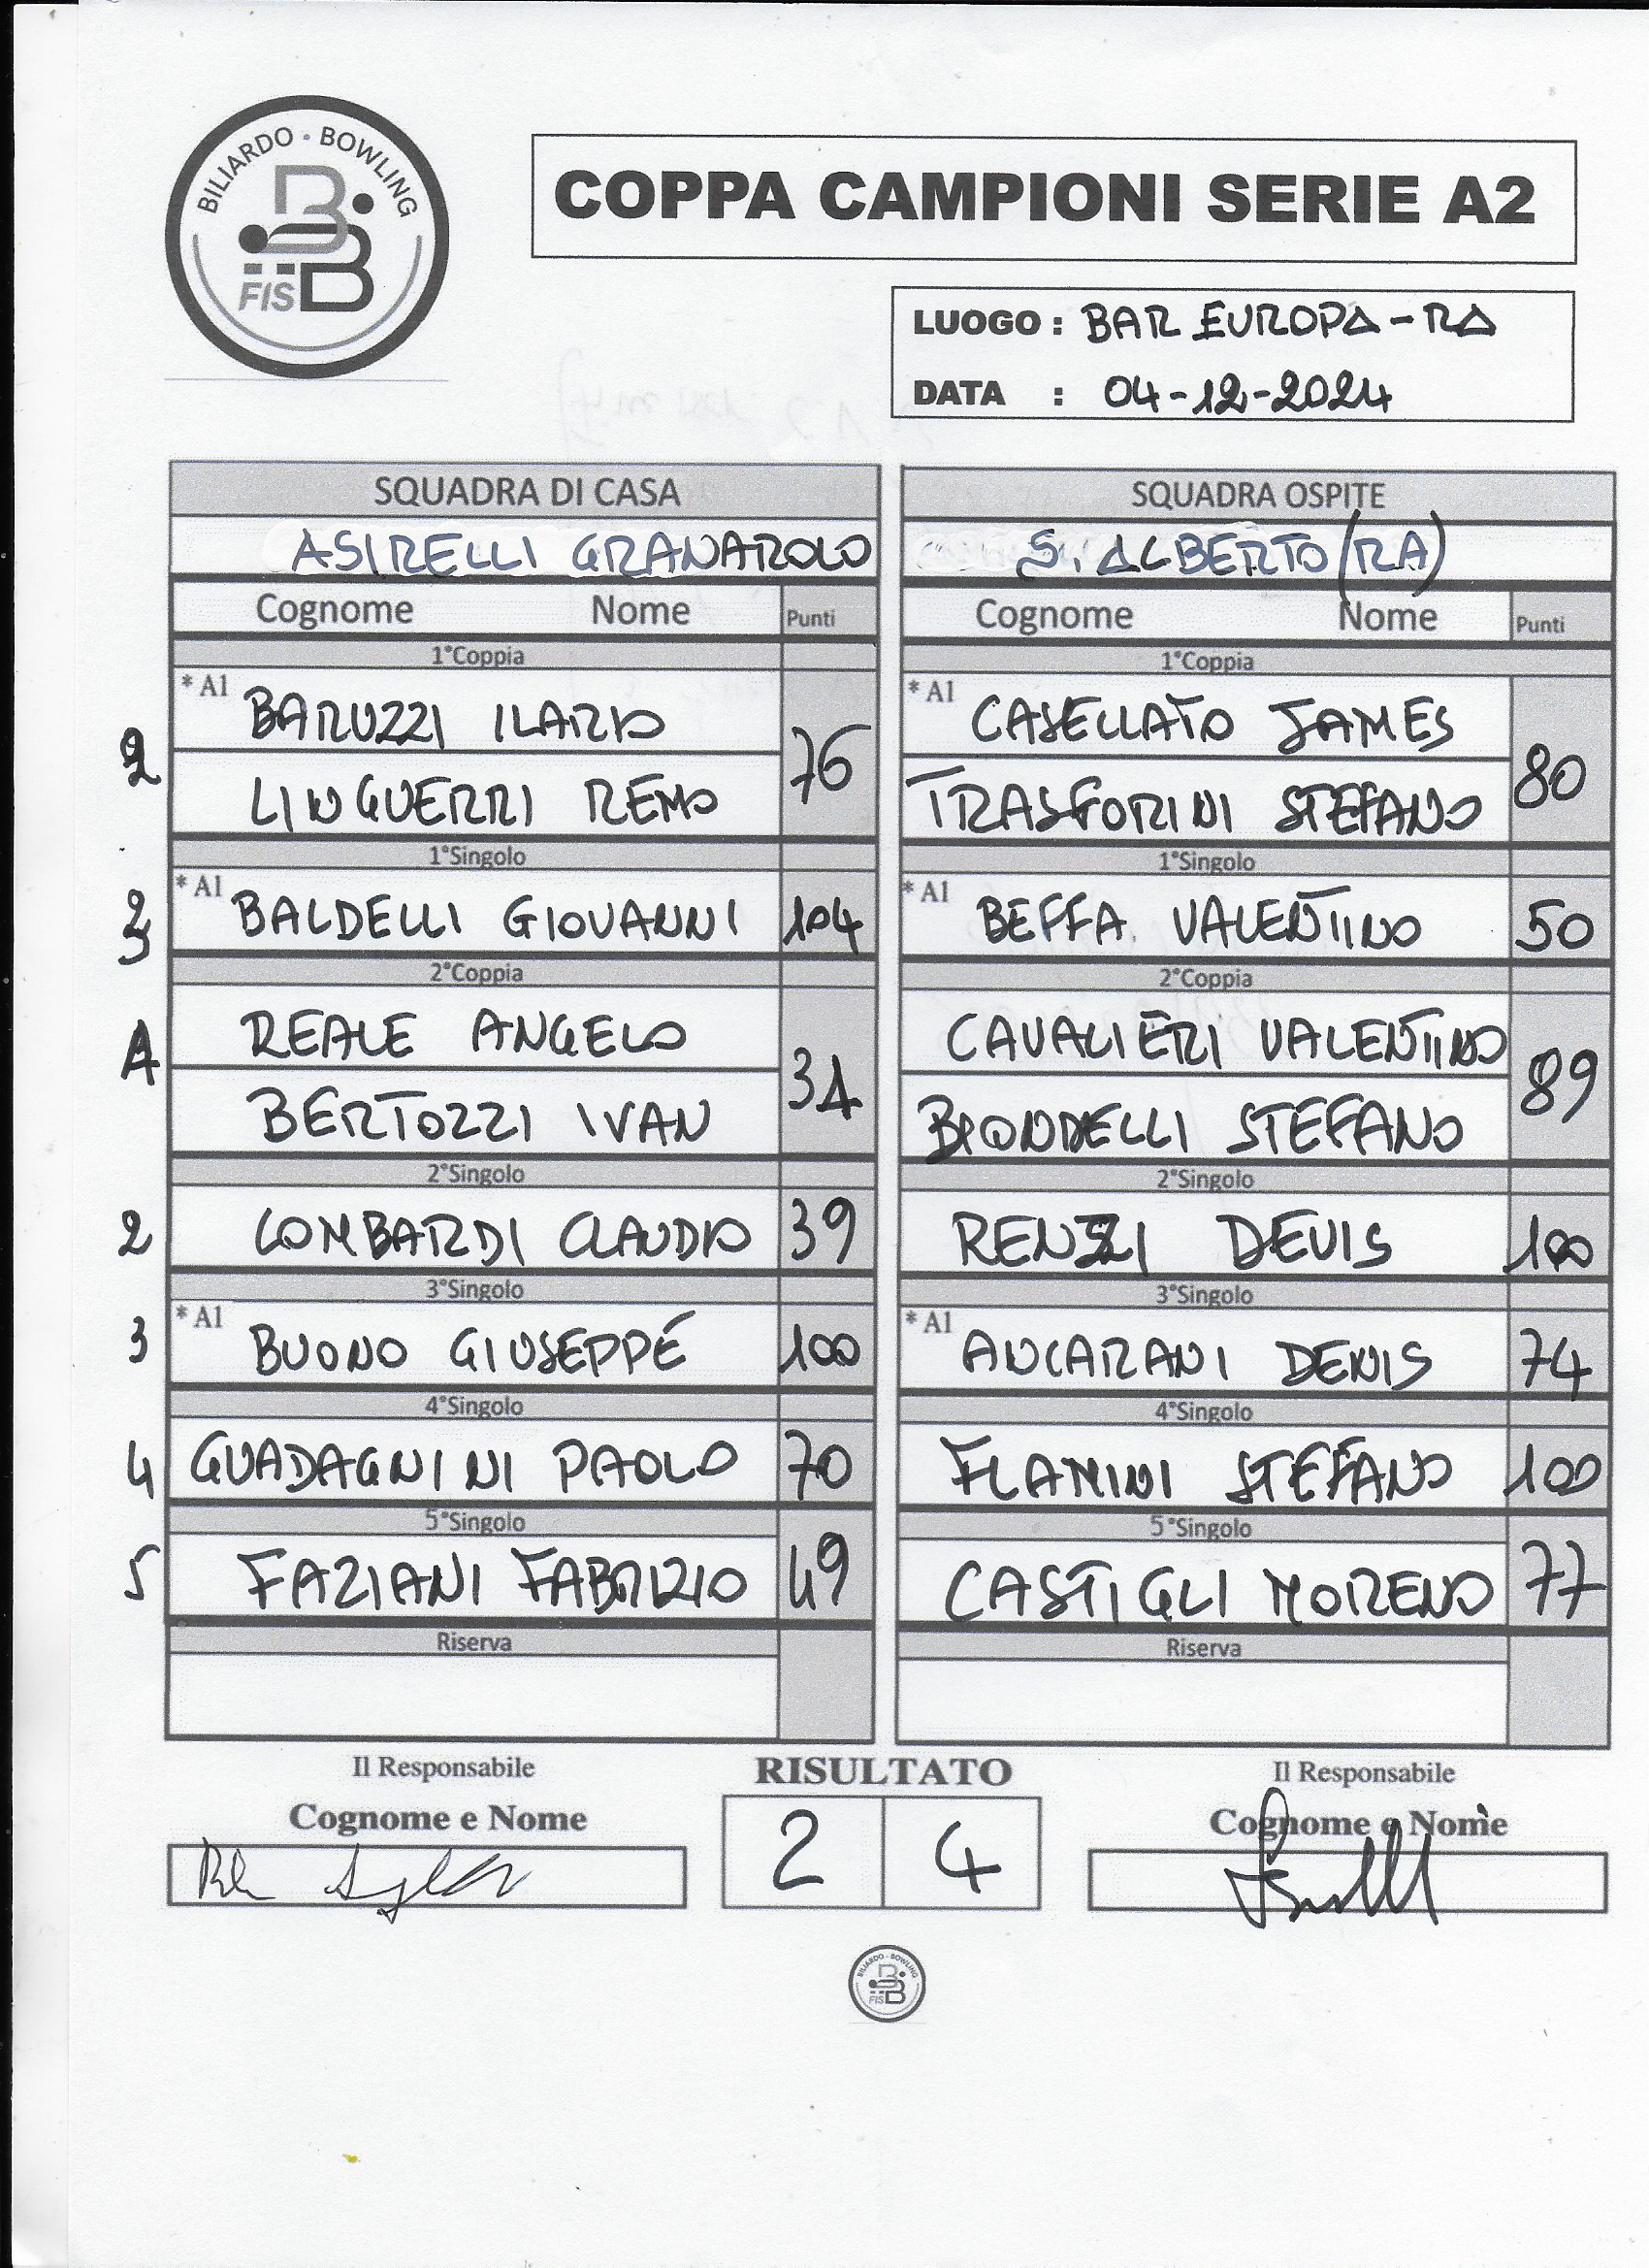 BILIARDO - BOWLING
FISBB
COPPA CAMPIONI SERIE A2
LUOGO : BAR EUROPA - RA
DATA : 04-12-2024
SQUADRA DI CASA
ASIRELLI GRANAROLO
Cognome Nome Punti
1°Coppia
2
* A1 BARUZZI ILARIO
LINGUERRI REMO
76
1°Singolo
3
* A1 BALDELLI GIOVANNI 104
2°Coppia
1
REALE ANGELO
BERTOZZI IVAN
31
2°Singolo
2 LOMBARDI CLAUDIO 39
3°Singolo
3 * A1 BUONO GIUSEPPE 100
4°Singolo
4 GUADAGNINI PAOLO 70
5°Singolo
5 FAZIANI FABRIZIO 49
Riserva
SQUADRA OSPITE
S. ALBERTO (RA)
Cognome Nome Punti
1°Coppia
* A1 CASELLATO JAMES
TRASFORINI STEFANO
80
1°Singolo
* A1 BEFFA VALENTINO 50
2°Coppia
CAVALIERI VALENTINO
BIONDELLI STEFANO
89
2°Singolo
RENZI DEVIS 100
3°Singolo
* A1 ANCARANI DENIS 74
4°Singolo
FLAMINI STEFANO 100
5°Singolo
CASTIGLI MORENO 77
Riserva
Il Responsabile
Cognome e Nome
RISULTATO
2 4
Il Responsabile
Cognome e Nome
BILIARDO - BOWLING
FISBB